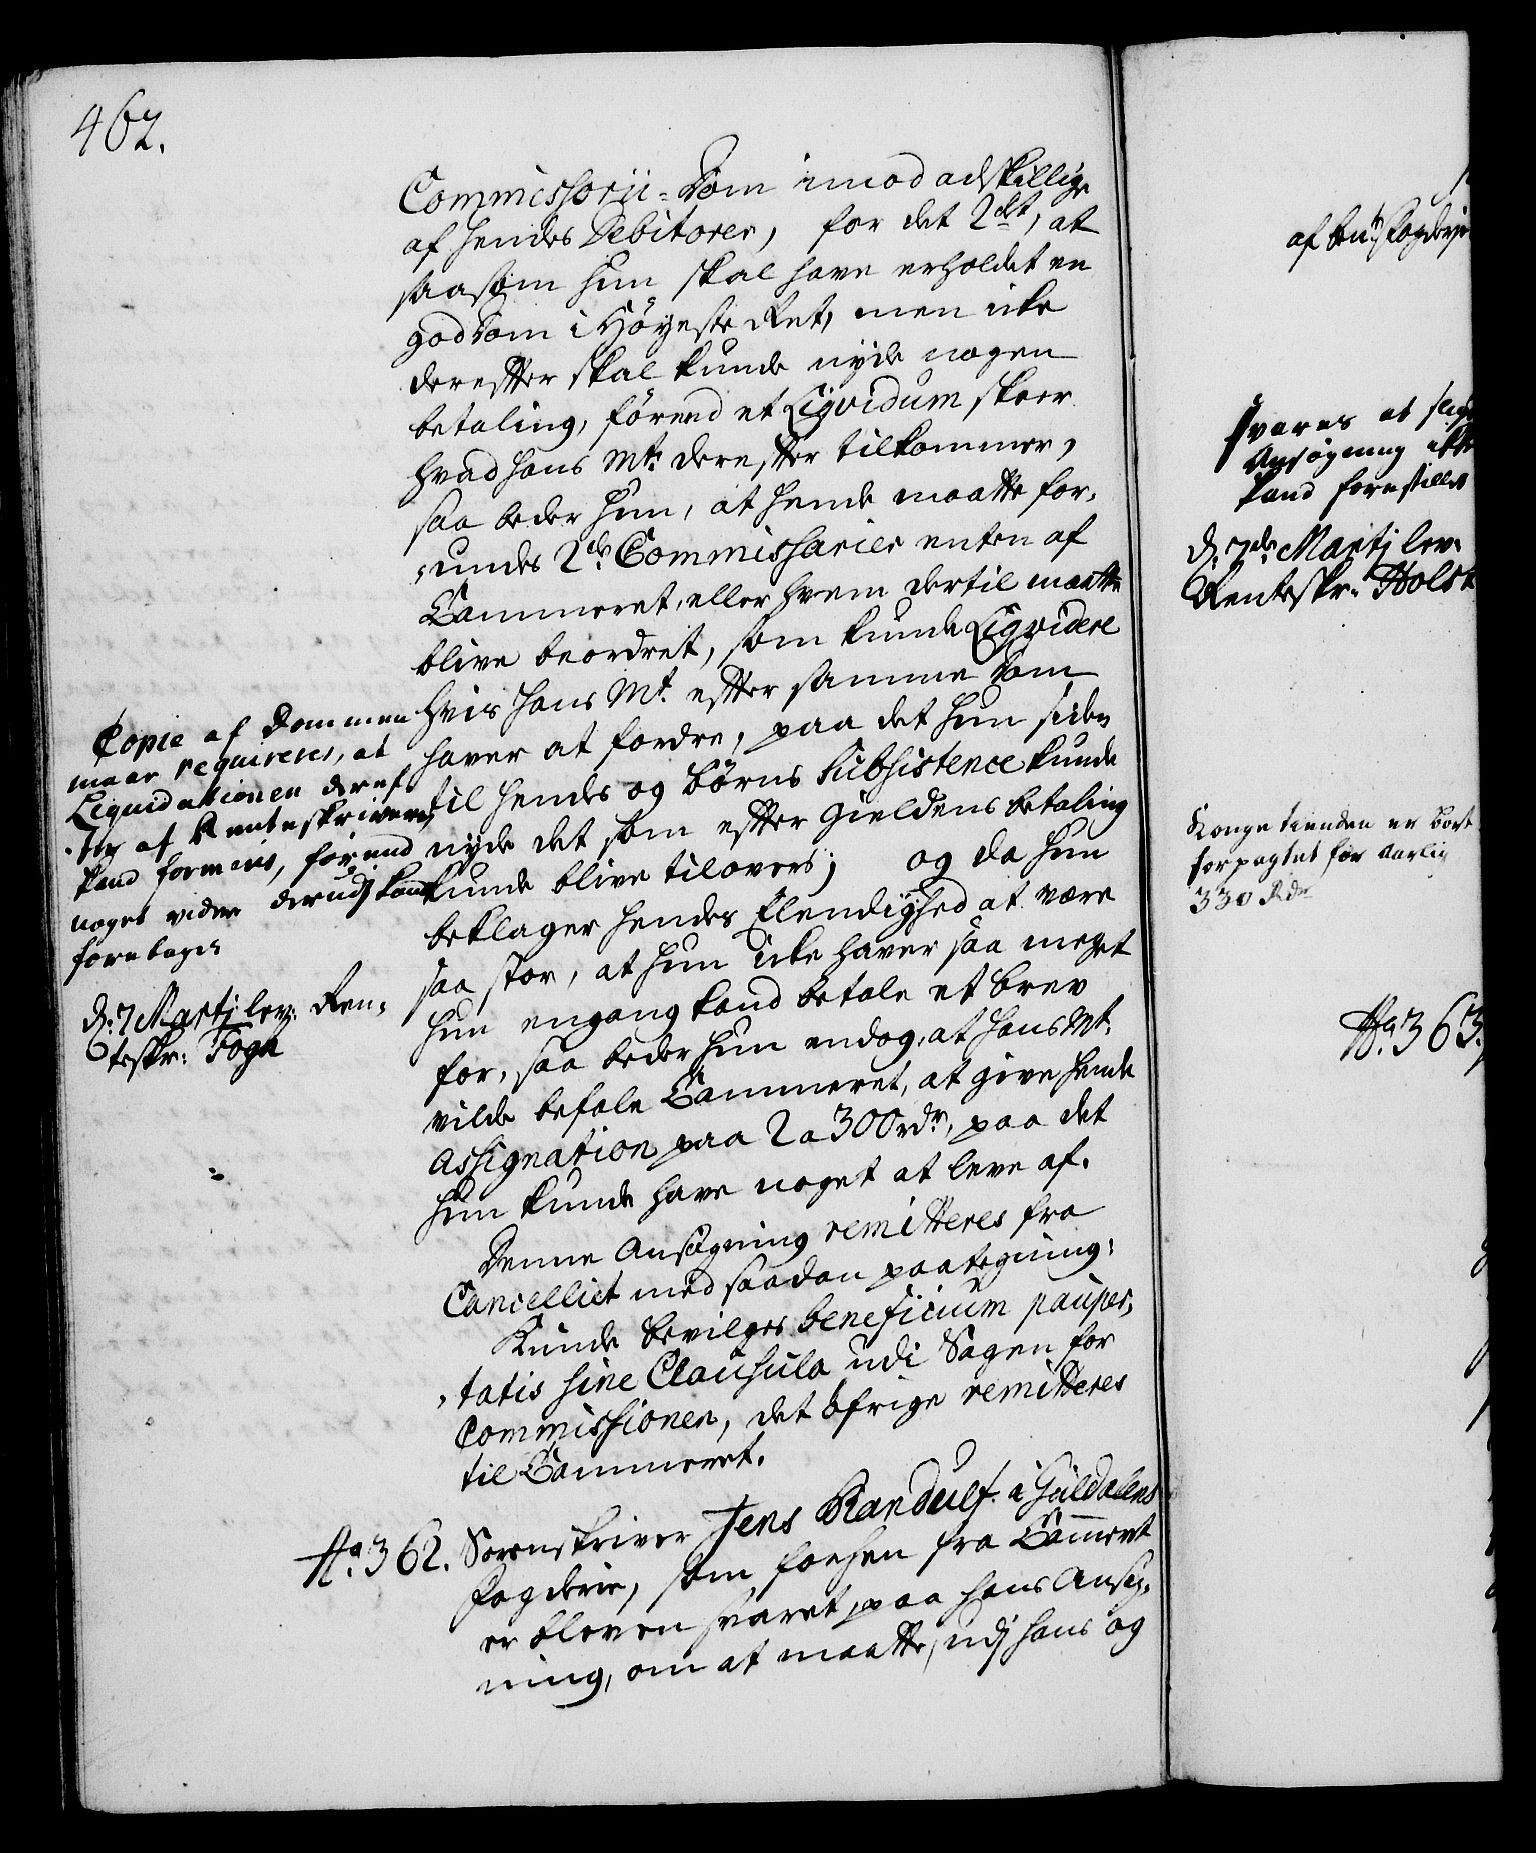 462.
Commissorii-Dom imod adskillige
af hendes Debitorer, for det 2det, at
saasom hun skal have erholdet en
god Dom i Höyeste Ret, men icke
derefter skal kunde nyde nogen
betaling, förend et Liqvidum skeer
hvad hans Mt: derefter tilkommer,
saa beder hun, at hende maatte for-
undes 2de Commissarier enten af
Cammeret, eller hvem dertil maatte
blive beordret, som kunde Liqvidere
hvis hans Mt. efter samme Dom
haver at fordre, paa det hun siden
til hendes og börns Subsistence kunde
nyde det som efter Gieldens betaling
kunde blive tilovers; og da hun
beklager hendes Elendighed at være
saa stor, at hun icke haver saa meget
hun engang kand betale et brev
for, saa beder hun endog, at hans Mt.
vilde befale Cammeret, at give hende
Assignation paa 2 a 300 rdr, paa det
hun kunde have noget at leve af.
Denne Ansögning remitteres fra
Cancelliet med saadan paategning:
Kunde bevilges beneficium pauper-
tatis sine Clausula udi Sagen for
Commissionen, det öfrige remitteres
til Cammeret.
Copie af Dommen
maae reqvireres, at
Liquidationen deref-
ter af Renteskriveren
kand formeres, förend
noget videre derudj kand
foretages
d: 7 Martj lev: Ren-
teskr: Fogh
No. 362. Sorenskriver Jens Randulf i Guldalens
Fogderie, som forhen fra Cammeret
er bleven svaret paa hans Ansög-
ning, om at maatte, udj hans og
af bem: Fogderje
Svares at
Ansögning
kand forestilles
d: 7de Martj lev:
Renteskr: Holst
Kongetienden er bort-
forpagtet for aarlig
330 Rdr
No. 363.